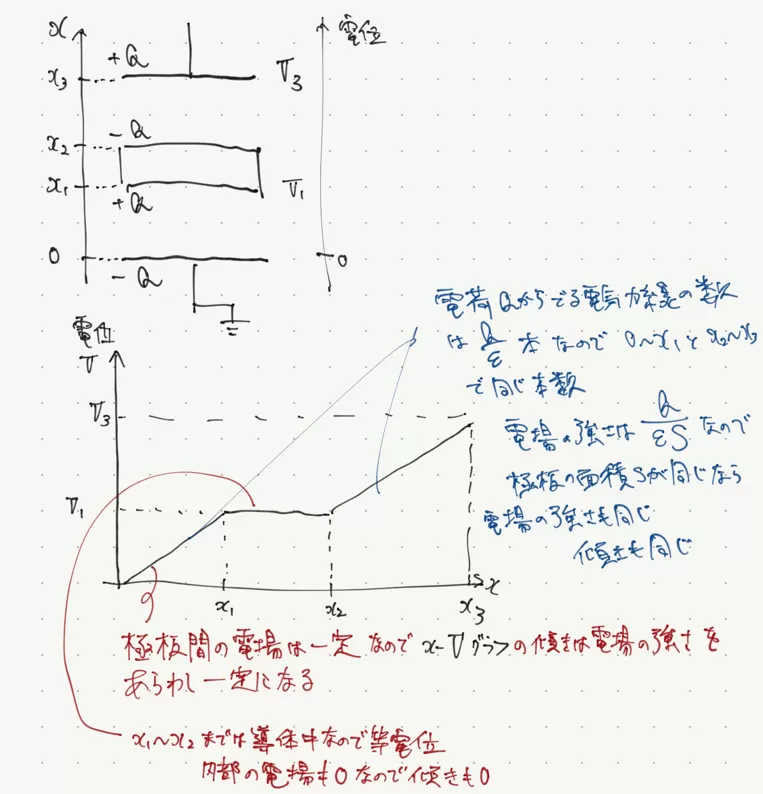 x
電位
+Q
x3
V3
-Q
x2
x1
V1
+Q
0
0
-Q
電荷Qからでる電気力線の数
は Q/ε 本なので 0~x1とx2~x3
で同じ本数
電位
V
V3
電場の強さは Q/εS なので
極板の面積Sが同じなら
V1
電場の強さも同じ
傾きも同じ
x1
x2
x3
x
極板間の電場は一定なので x-Vグラフの傾きは電場の強さを
あらわし一定になる
x1~x2までは導体中なので等電位
内部の電場も0なので傾きも0